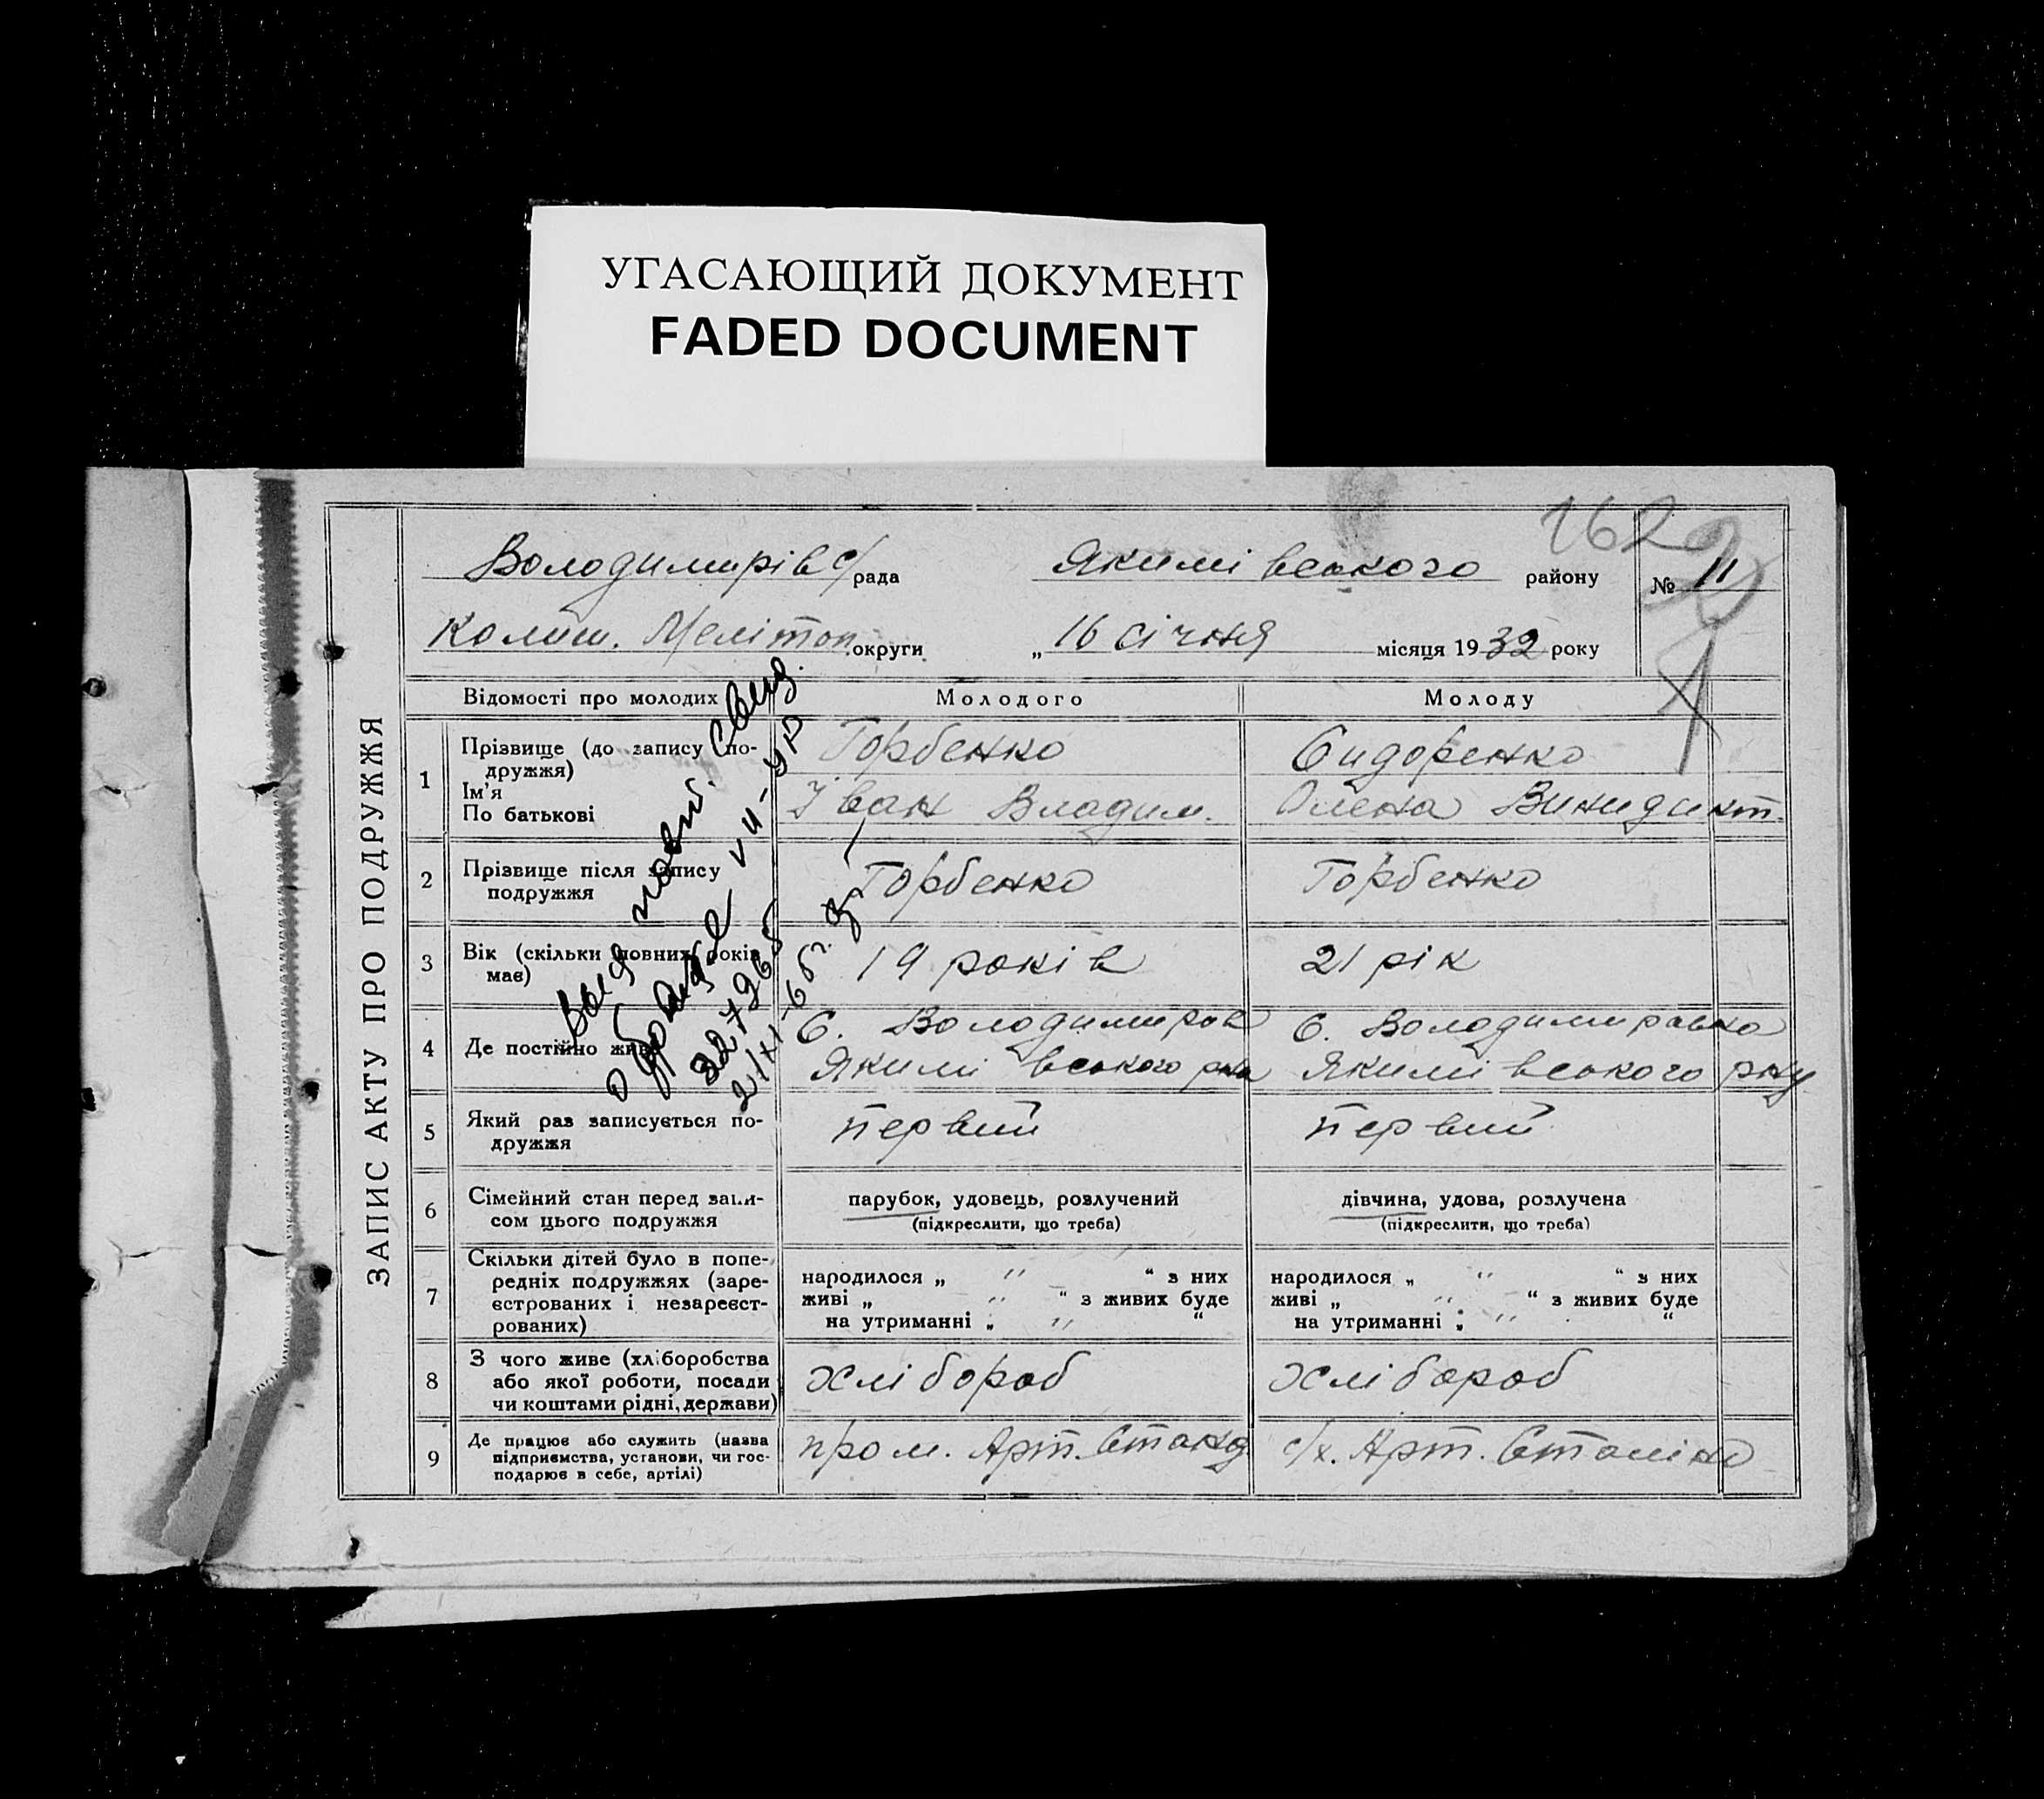 УГАСАЮЩИЙ ДОКУМЕНТ
FADED DOCUMENT
162
ЗАПИС АКТУ ПРО ПОДРУЖЖЯ
Володимирів с/рада Якимівського району № 11
колиш. Мелітоп. округи „16 січня місяця 1932 року
Відомості про молодих Молодого Молоду
1 Прізвище (до запису подружжя) Горбенко Сидоренко
Ім'я
По батькові Іван Владим. Олена Винидикт.
2 Прізвище після запису подружжя Горбенко Горбенко
3 Вік (скільки повних років має) 19 років 21 рік
4 Де постійно живе С. Володимиров С. Володимиравка
Якимівського рна Якимівського рну
5 Який раз записується подружжя первий первий
6 Сімейний стан перед записом цього подружжя парубок, удовець, розлучений дівчина, удова, розлучена
(підкреслити, що треба) (підкреслити, що треба)
7 Скільки дітей було в попередніх подружжях (зареєстрованих і незареєстрованих) народилося „ " “ з них народилося „ " “ з них
живі „ " “ з живих буде живі „ " “ з живих буде
на утриманні „ " “ на утриманні „ " “
8 З чого живе (хліборобства або якої роботи, посади чи коштами рідні, держави) хлібороб хлібороб
9 Де працює або служить (назва підприємства, установи, чи господарює в себе, артілі) пром. Арт. с/х. Арт. Сталіна
повт. свид.
о браке VII-УР
327965